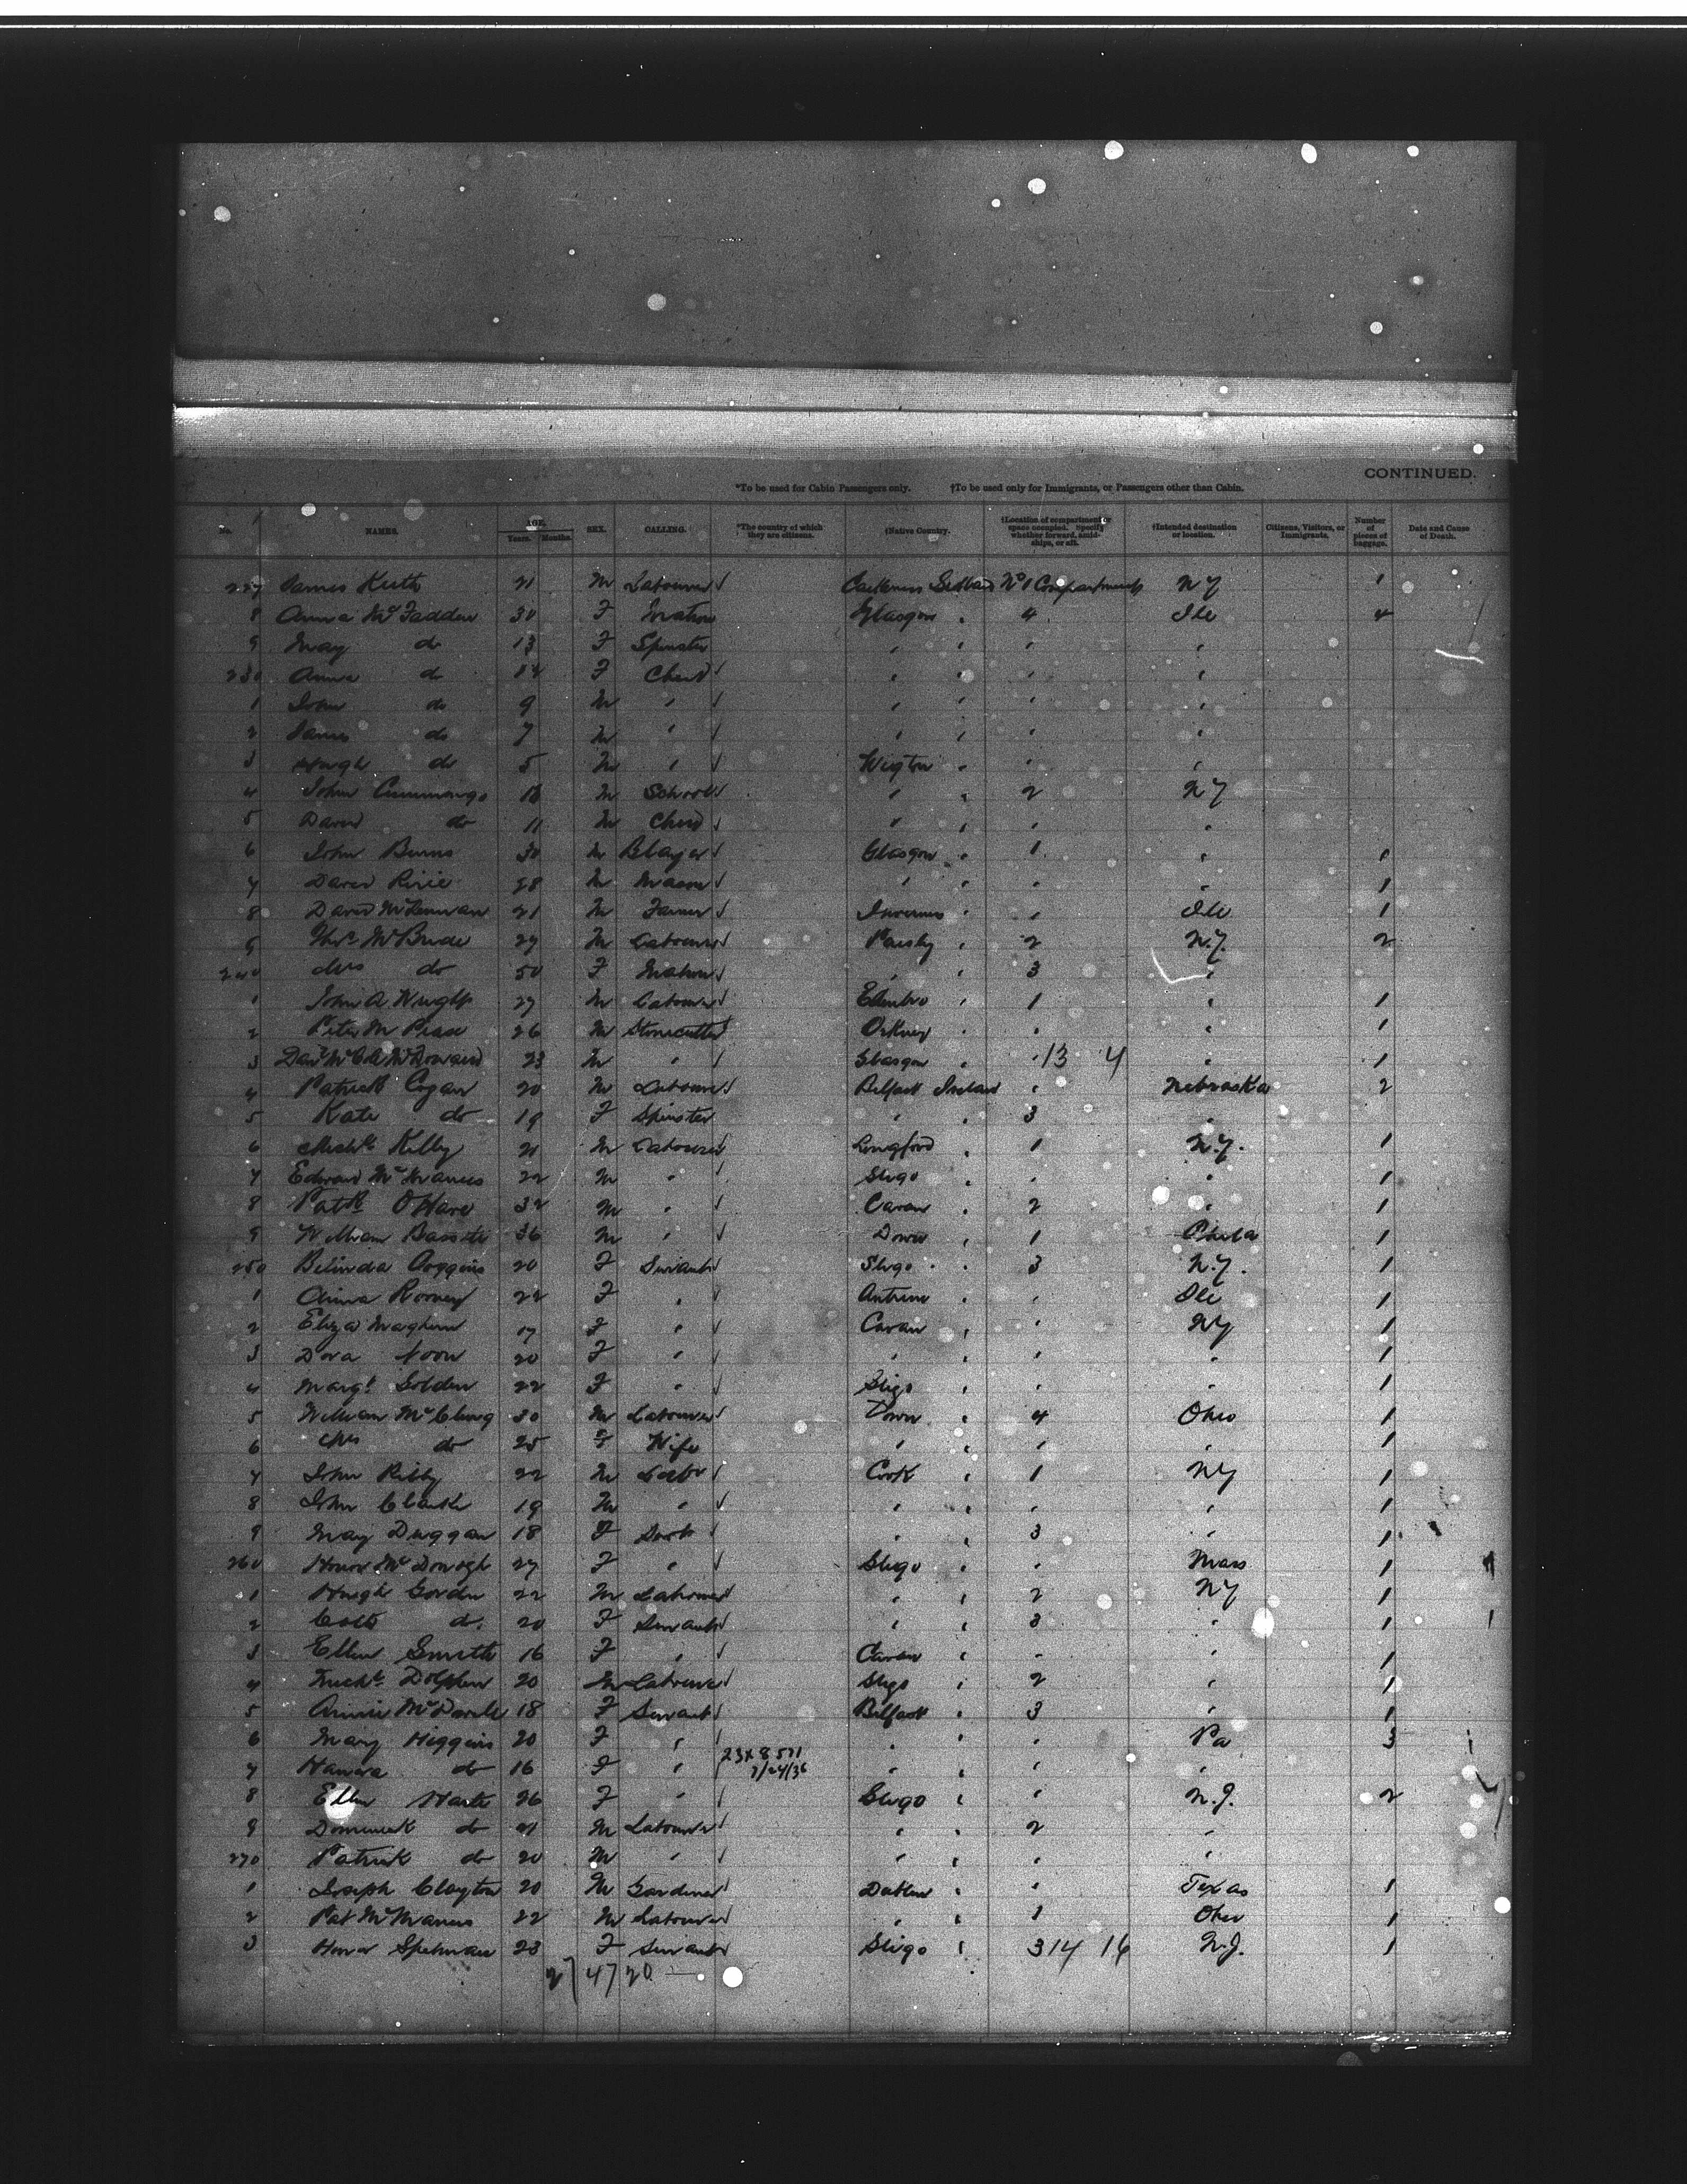 CONTINUED.
*To be used for Cabin Passengers only. †To be used only for Immigrants, or Passengers other than Cabin.
No. NAMES. AGE. Years. Months. SEX. CALLING. *The country of which they are citizens. †Native Country. †Location of compartment or space occupied. Specify whether forward, amidships, or aft. †Intended destination or location. Citizens, Visitors, or Immigrants. Number of pieces of baggage. Date and Cause of Death.
227 James Keith 21 M Labourer Caithness Scotland No 1 Compartment NY 1
8 Anna McFadden 30 F Matron Glasgow " 4 Ills 4
9 May do 13 F Spinster " " " "
230 Anna do F Child " " " "
1 John do 9 M " " " " "
2 James do 7 M " " " " "
3 Hugh do 5 M " Wigton " " "
4 John Cummings M School " " 2 NY
5 David do 11 M Child " " " "
6 John Burns 30 M Glasgow " 1 " 1
7 David Pirie 28 M Mason " " " " 1
8 David McLennan 21 M Farmer Inverness " " Ills 1
9 McBride 27 M Labourer Paisley " 2 N.Y. 2
240 Mrs do 50 F Matron " " 3 "
1 John A Wright 27 M Labourer Edinbro " 1 " 1
2 Peter M 26 M Stonecutter Orkney " " " 1
3 23 M " Glasgow " " 13 4 " 1
4 Patrick Cogan 20 M Labourer Belfast Ireland " Nebraska 2
5 Kate do 19 F Spinster " " 3 "
6 Michl Kelly 21 M Labourer Longford " 1 N.Y. 1
7 Edward McManus 22 M " Sligo " " " 1
8 Patk O'Hare 32 M " Cavan " 2 " 1
9 William 36 M " Down " 1 Phila 1
250 Belinda Coggins 20 F Servant Sligo " 3 N.Y. 1
1 Anna Rooney 22 F " Antrim " " Ills 1
2 Eliza 17 F " Cavan " " NY 1
3 Dora Noon 20 F " " " " " 1
4 Margt Golden 22 F " Sligo " " " 1
5 William McClung 30 M Labourer Down " 4 Ohio 1
6 Mrs do 25 F Wife " " " " 1
7 John 22 M Labr Cork " 1 NY 1
8 John Clark 19 M " " " " " 1
9 May Duggan 18 F Servt " " 3 " 1
260 Honor McDonogh 27 F " Sligo " " Mass 1
1 Hugh Gordon 22 M Labourer " " 2 NY 1
2 do. 20 F Servant " " 3 " 1
3 Ellen Smith 16 F " Cavan " " " 1
4 Michl Dolphin 20 M Labourer Sligo " 2 " 1
5 Annie 18 F Servant Belfast " 3 " 1
6 Mary Higgins 20 F " " " " Pa 3
7 Hanora do 16 F " 23x8571 7/24/36 " " " "
8 Ellen Harte 26 F " Sligo " " N.J. 2
9 Dominick do 21 M Labourer " " 2 "
270 Patrick do 20 M " " " " "
1 Joseph Clayton 20 M Gardener Dublin " " Texas 1
2 Pat McManus 22 M Labourer " " 1 Ohio 1
3 Honor Spelman 23 F Servant Sligo " 3 14 16 N.J. 1
27 47 20